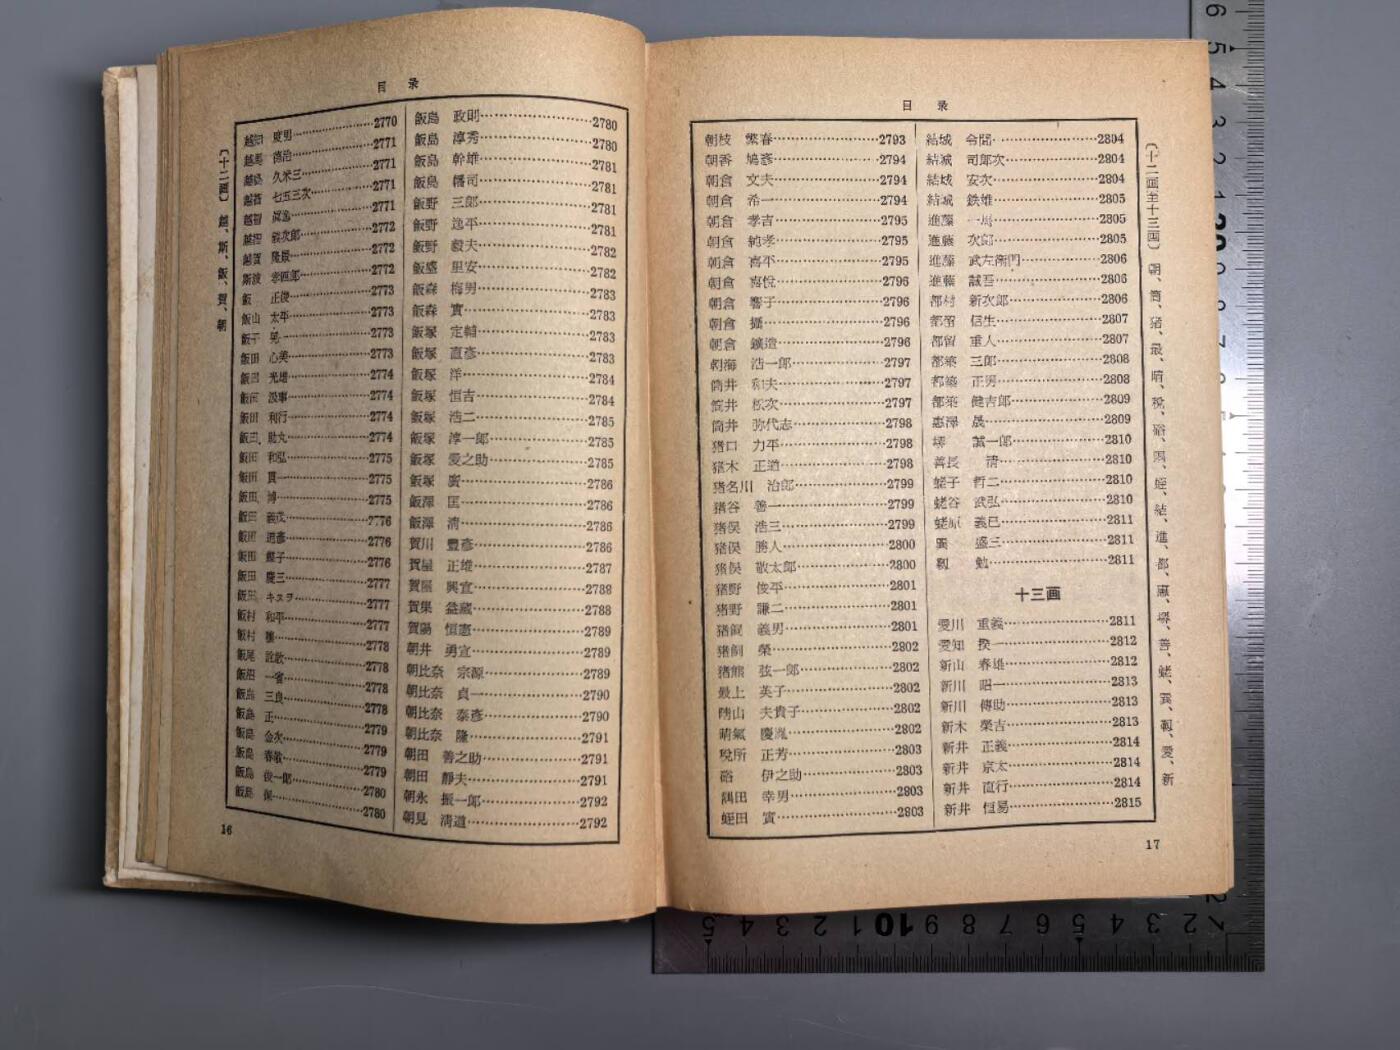 目　录
〔十二画〕越、斯、飯、賀、朝
越智　久米三……2771
越智　七五三次……2771
越智　義次郎……2772
越賀　隆景……2772
斯波　孝四郎……2772
飯　正俊……2773
飯山　太平……2773
飯田　心美……2773
飯田　光雄……2774
飯田　利行……2774
飯田　助丸……2774
飯田　和弘……2775
飯田　貫一……2775
飯田　博……2775
飯田　義茂……2776
飯田　蝶子……2776
飯田　慶三……2777
飯田　キヌヲ……2777
飯村　和平……2777
飯村　穰……2778
飯沼　一省……2778
飯島　三良……2778
飯島　正……2779
飯島　金次……2779
飯島　春敬……2779
飯島　俊一郎……2780
飯島　保……2780
飯島　政則……2780
飯島　淳秀……2780
飯島　幹雄……2781
飯島　幡司……2781
飯野　三郎……2781
飯野　逸平……2781
飯野　毅夫……2782
飯盛　里安……2782
飯森　梅男……2783
飯森　實……2783
飯塚　定輔……2783
飯塚　直彥……2783
飯塚　洋……2784
飯塚　恒吉……2784
飯塚　浩二……2785
飯塚　淳一郎……2785
飯塚　愛之助……2785
飯塚　廣……2786
飯澤　匡……2786
飯澤　清……2786
賀川　豐彥……2786
賀屋　正雄……2787
賀屋　興宣……2788
賀集　益蔵……2788
賀陽　恒憲……2789
朝井　勇宣……2789
朝比奈　宗源……2789
朝比奈　貞一……2790
朝比奈　泰彥……2790
朝比奈　隆……2791
朝田　善之助……2791
朝田　靜夫……2791
朝永　振一郎……2792
朝見　清道……2792
16
目　录
朝枝　繁春……2793
朝香　鳩彥……2794
朝倉　文夫……2794
朝倉　希一……2794
朝倉　孝吉……2795
朝倉　純孝……2795
朝倉　喜平……2795
朝倉　喜悅……2796
朝倉　響子……2796
朝倉　攝……2796
朝倉　鑛造……2796
朝海　浩一郎……2797
筒井　和夫……2797
筒井　松次……2797
筒井　弥代志……2798
猪口　力平……2798
猪木　正道……2798
猪名川　治郎……2799
猪谷　善一……2799
猪俣　浩三……2799
猪俣　勝人……2800
猪俣　敬太郎……2800
猪野　俊平……2801
猪野　謙二……2801
猪飼　義男……2801
猪飼　榮……2802
猪熊　弦一郎……2802
最上　英子……2802
勝山　夫貴子……2802
晴氣　慶胤……2802
稅所　正芳……2803
硲　伊之助……2803
隅田　幸男……2803
蛭田　實……2803
結城　令聞……2804
結城　司郎次……2804
結城　安次……2804
結城　鉄雄……2805
進藤　一馬……2805
進藤　次郎……2805
進藤　武左衛門……2806
進藤　誠吾……2806
都村　新次郎……2806
都留　信生……2807
都留　重人……2807
都築　三郎……2808
都築　正男……2808
都築　健吉郎……2809
惠澤　晟……2809
堺　誠一郎……2810
善長　清……2810
蛯子　哲二……2810
蛯谷　武弘……2810
蛯原　義巳……2811
巽　盛三……2811
靱　勉……2811
十三画
愛川　重義……2811
愛知　揆一……2812
新山　春雄……2812
新川　昭一……2813
新川　傳助……2813
新木　榮吉……2813
新井　正義……2814
新井　京太……2814
新井　直行……2814
新井　恒易……2815
〔十二画至十三画〕朝、筒、猪、最、晴、稅、硲、隅、蛭、結、進、都、惠、堺、善、蛯、巽、靱、愛、新
17